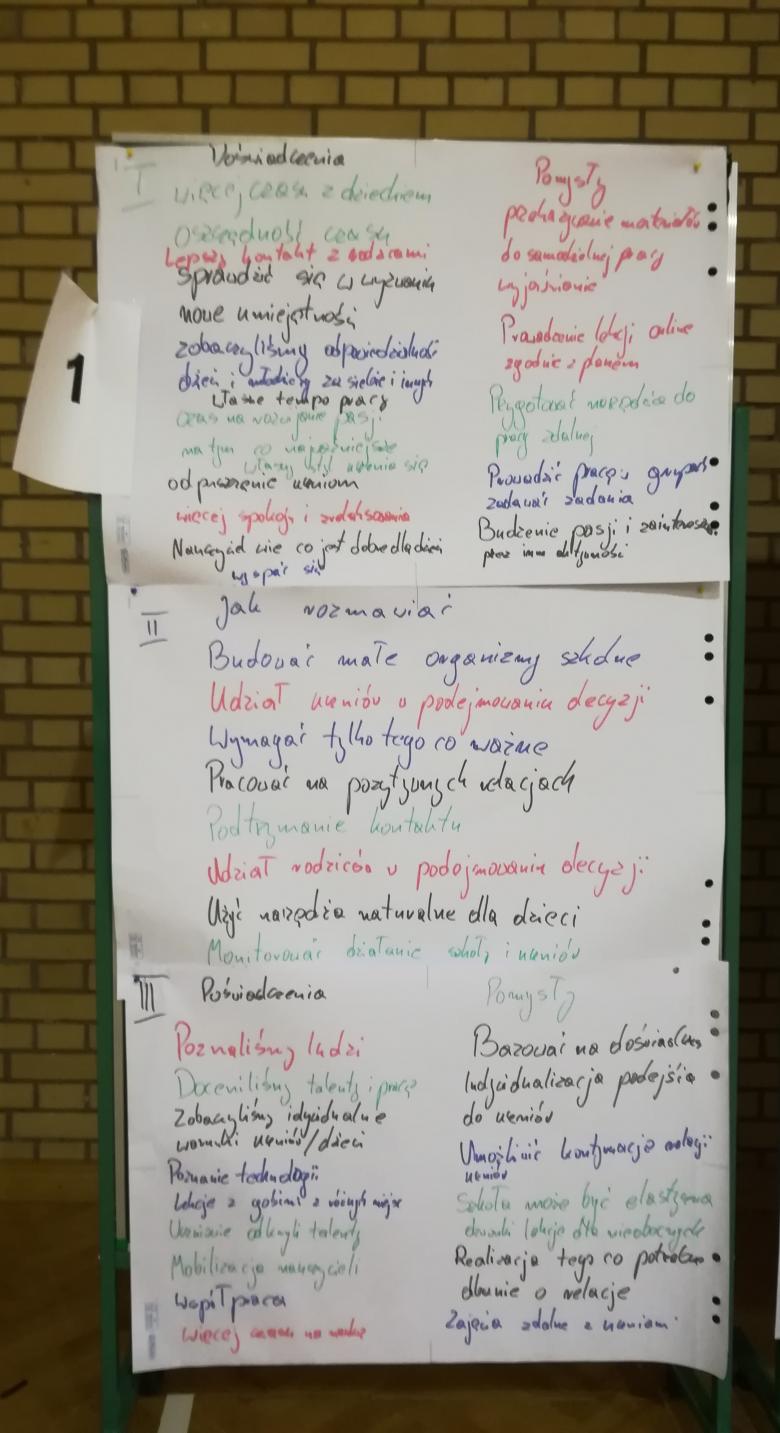 1
I
Doświadczenia
więcej czasu z dzieckiem
Oszczędność czasu
Lepszy kontakt z rodzicami
Sprawdzić się w wyzwaniu
nowe umiejętności
zobaczyliśmy odpowiedzialność
dzieci i młodzieży za siebie i innych
Własne tempo pracy
czas na rozwijanie pasji
na tym co najważniejsze
własny styl uczenia się
odpuszczenie uczniom
więcej spokoju i zrelaksowania
Nauczyciel wie co jest dobre dla dzieci
wyspać się
Pomysły
przekazywanie materiałów
do samodzielnej pracy
wyjaśnianie
Prowadzenie lekcji online
zgodnie z planem
Przygotować narzędzia do
pracy zdalnej
Prowadzić pracę w grupach
zadawać zadania
Budzenie pasji i zainteresowań
przez inne aktywności
II
Jak rozmawiać
Budować małe organizmy szkolne
Udział uczniów w podejmowaniu decyzji
Wymagać tylko tego co ważne
Pracować na pozytywnych relacjach
Podtrzymanie kontaktu
Udział rodziców w podejmowaniu decyzji
Użyć narzędzia naturalne dla dzieci
Monitorować działanie szkoły i uczniów
III
Doświadczenia
Poznaliśmy ludzi
Doceniliśmy talenty i pracę
Zobaczyliśmy idywidualne
warunki uczniów/dzieci
Poznanie technologii
Lekcje z gośćmi z różnych miejsc
Uczniowie odkryli talenty
Mobilizacja nauczycieli
Współpraca
więcej czasu na naukę
Pomysły
Bazować na doświadcz
Indywidualizacja podejścia
do uczniów
Umożliwić kontynuację relacji
uczniów
Szkoła może być elastyczna
lekcje dla nieobecnych
Realizacja tego co potrzebne
dbanie o relacje
Zajęcia zdalne z uczniami